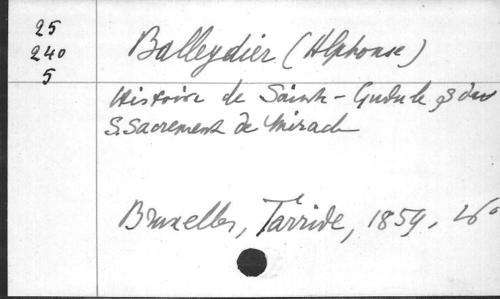 25
240
5
Balleydier (Alphonse)
Histoire de Sainte-Gudule & du
S. Sacrement de Miracle
Bruxelles, Tarride, 1859,